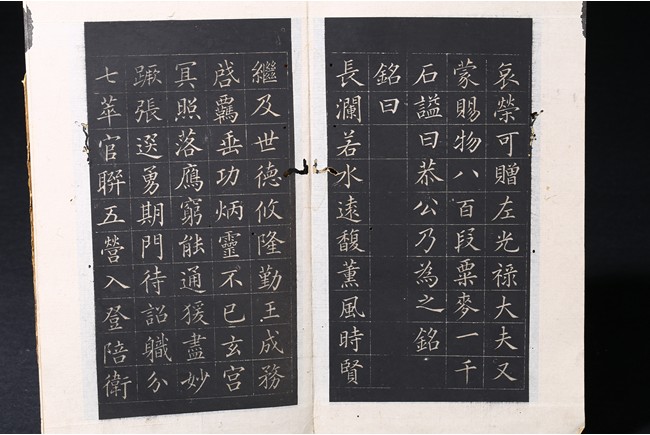 哀榮可贈左光祿大夫又
蒙賜物八百段粟麥一千
石謚曰恭公乃為之銘
銘曰
長瀾若水遠馥薰風時賢
繼及世德攸隆勤王成務
啓羈垂功炳靈不已玄宮
冥照落鷹窮能通猨盡妙
蹶張選勇期門待詔職分
七萃官聯五營入登陪衛